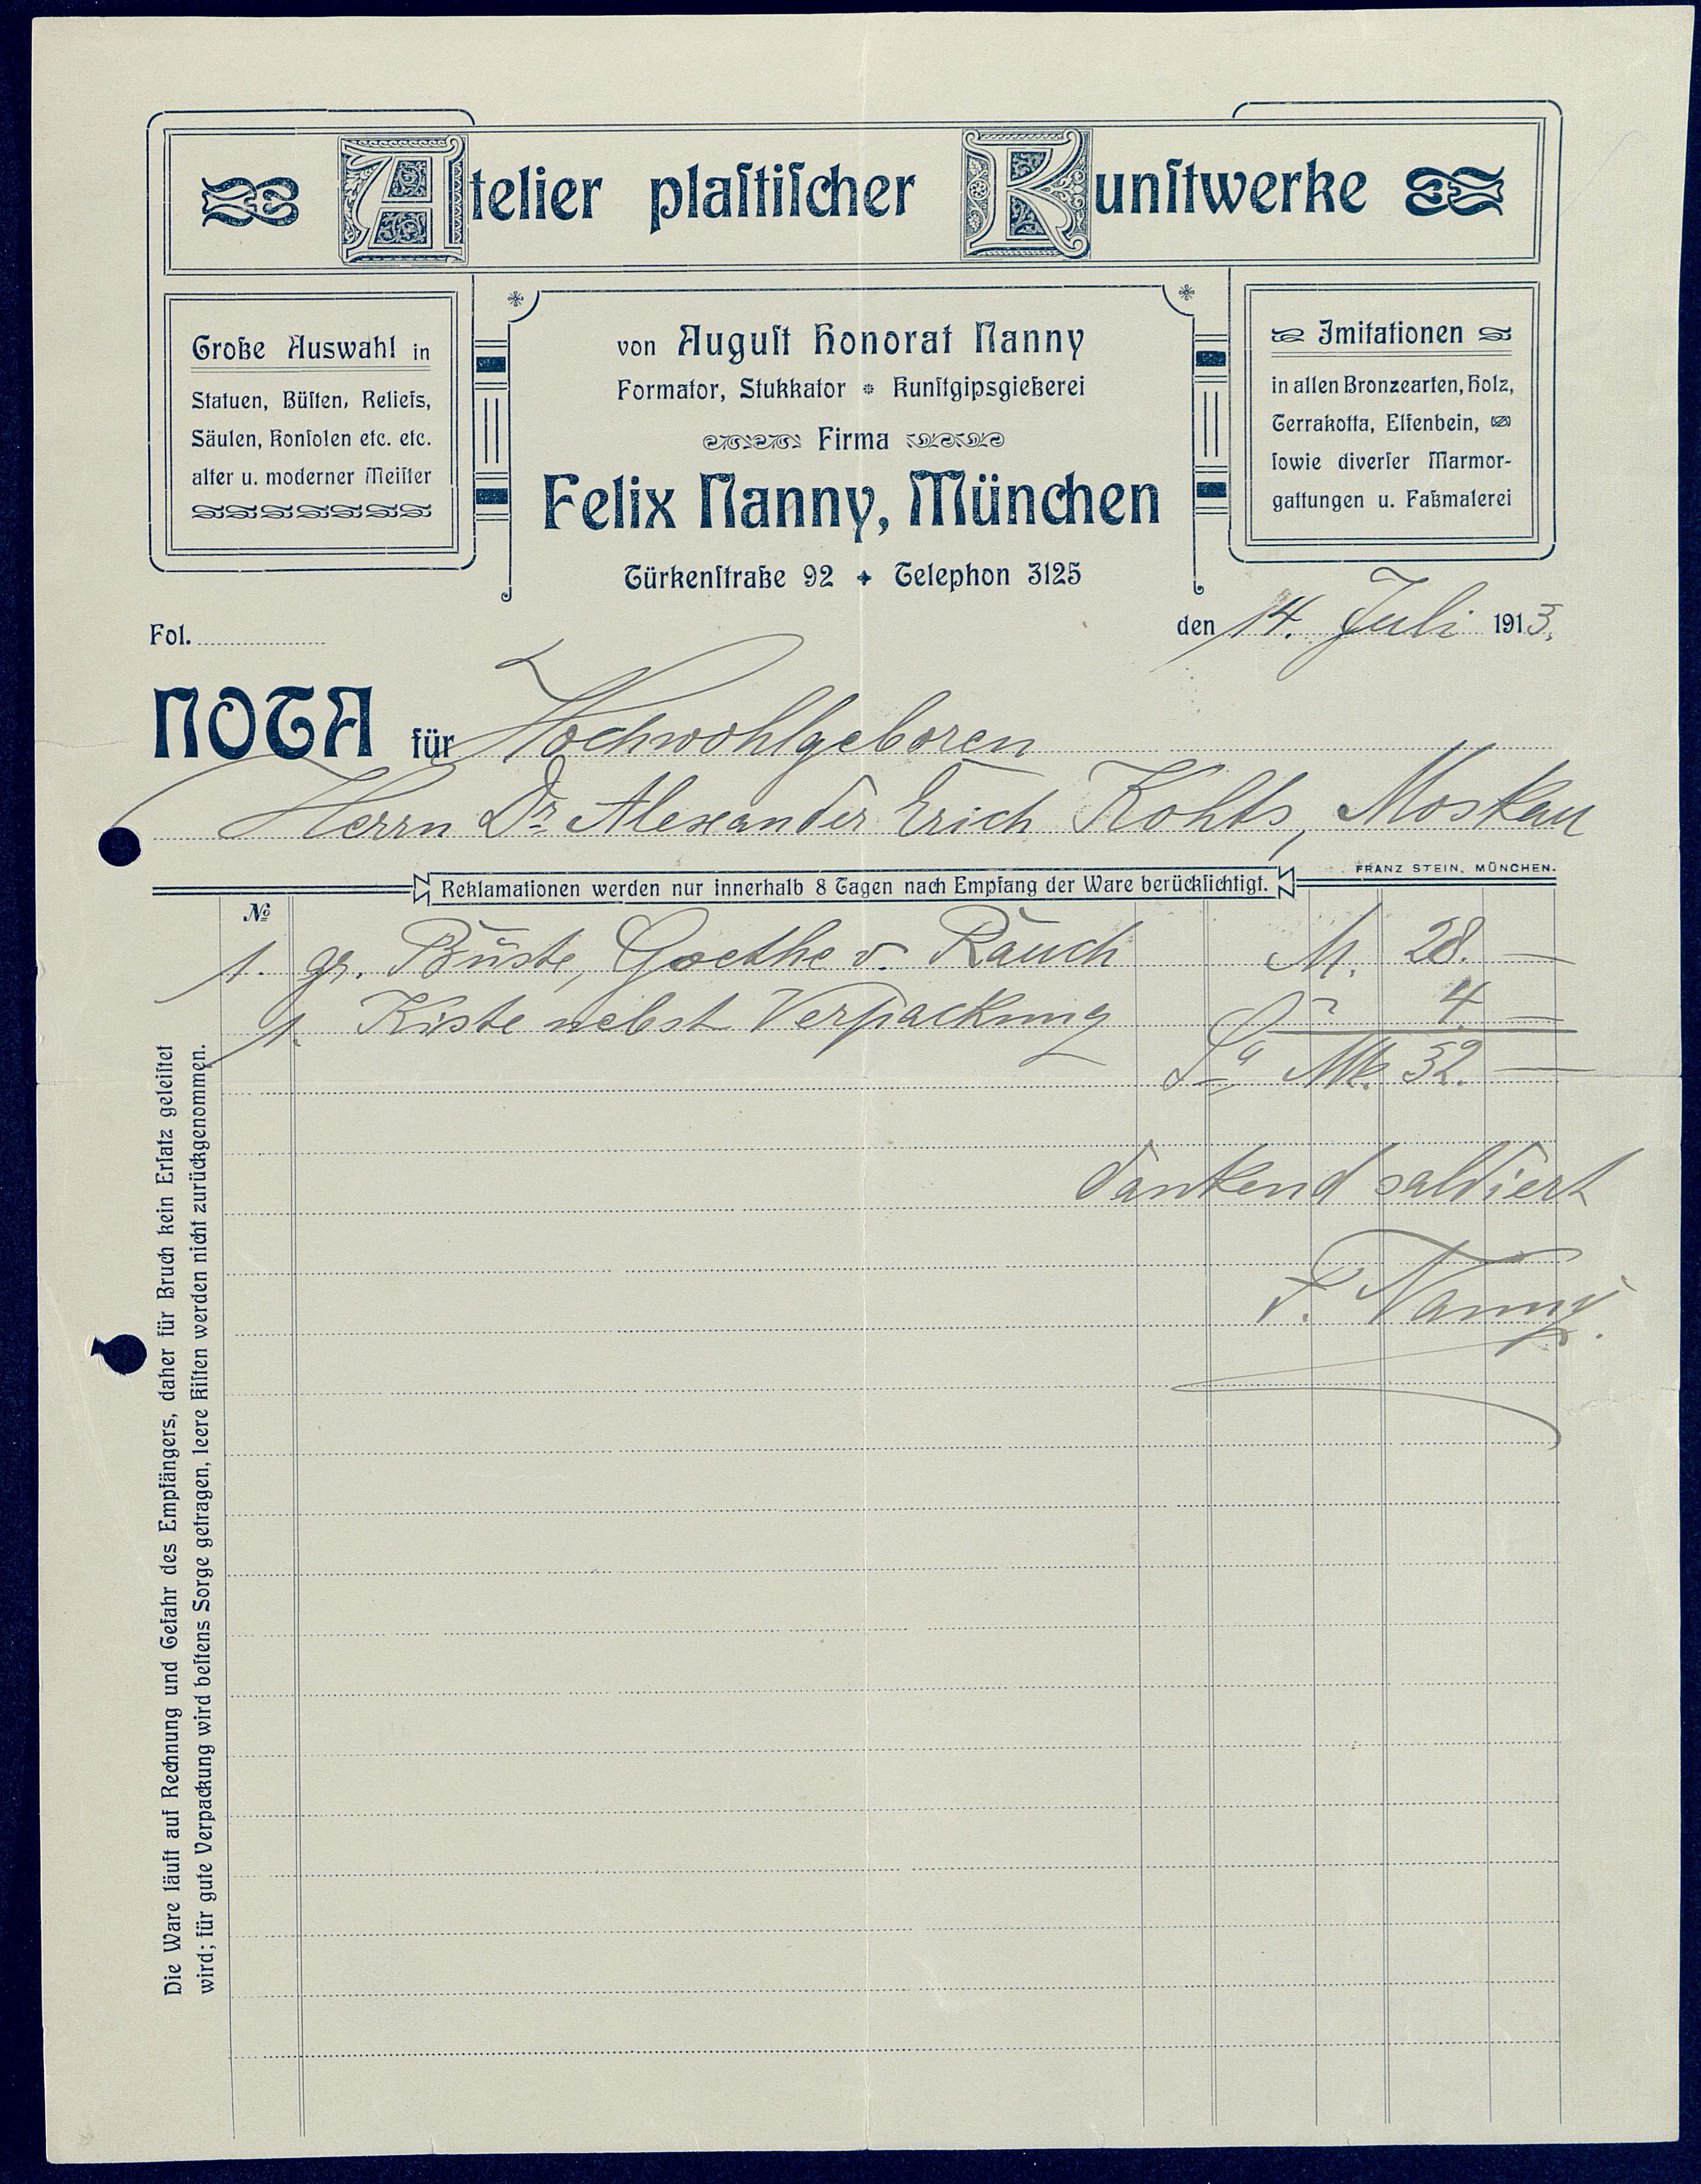 Atelier plaſtiſcher Kunſtwerke
Große Auswahl in
Statuen, Büſten, Reliefs,
Säulen, Konſolen etc. etc.
alter u. moderner Meiſter
von Auguſt Honorat Nanny
Formator, Stukkator * Kunſtgipsgießerei
Firma
Felix Nanny, München
Türkenſtraße 92 ✦ Telephon 3125
Imitationen
in allen Bronzearten, Holz,
Terrakotta, Elfenbein,
ſowie diverſer Marmor-
gattungen u. Faßmalerei
Fol.
den 14. Juli 1913.
NOTA für Hochwohlgeboren
Herrn Dr. Alexander Erich Kohts, Moskau
FRANZ STEIN, MÜNCHEN.
Reklamationen werden nur innerhalb 8 Tagen nach Empfang der Ware berückſichtigt.
No
1. gr. Büste, Goethe v. Rauch M. 28. —
1. Kiste nebst Verpackung 4. —
Sa Mk. 32. —
dankend saldiert
F. Nanny.
Die Ware läuft auf Rechnung und Gefahr des Empfängers, daher für Bruch kein Erſatz geleiſtet
wird; für gute Verpackung wird beſtens Sorge getragen, leere Kiſten werden nicht zurückgenommen.